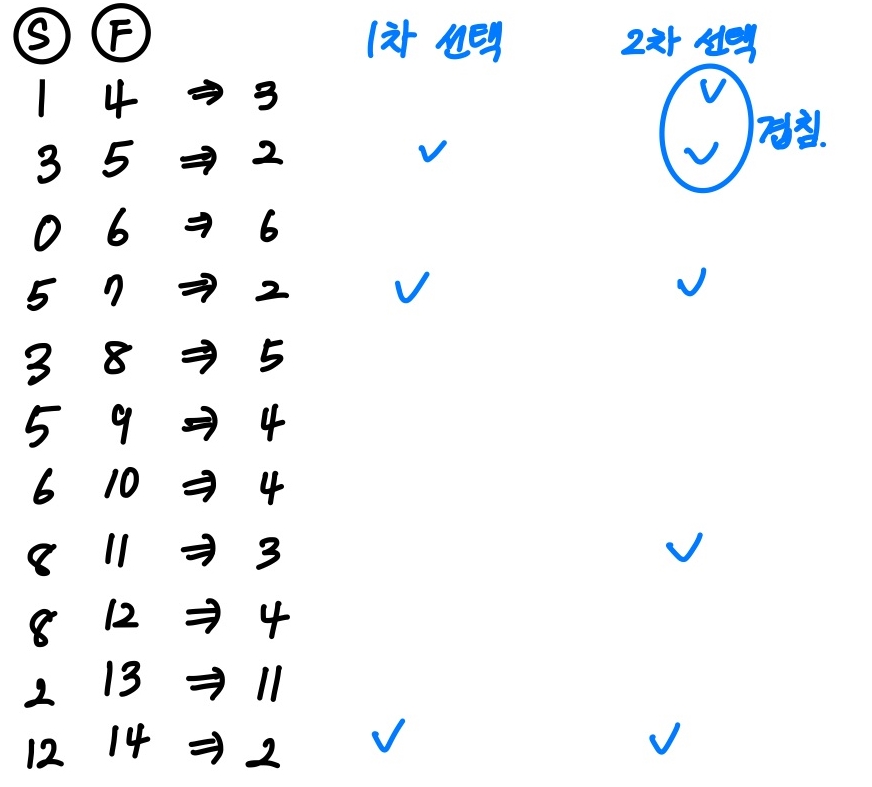 S F 1차 선택 2차 선택
1 4 ⇒ 3 ✓
3 5 ⇒ 2 ✓ ✓ 겹침.
0 6 ⇒ 6
5 7 ⇒ 2 ✓ ✓
3 8 ⇒ 5
5 9 ⇒ 4
6 10 ⇒ 4
8 11 ⇒ 3 ✓
8 12 ⇒ 4
2 13 ⇒ 11
12 14 ⇒ 2 ✓ ✓